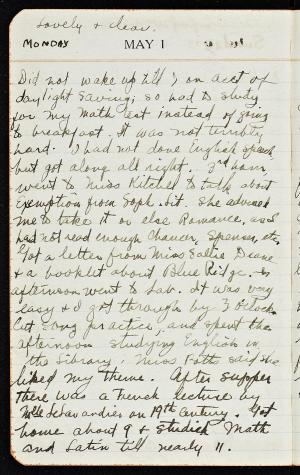 Lovely & clear.
MONDAY MAY 1
Did not wake up till 7 on acct of
daylight saving; so had to study
for my Math test instead of going
to breakfast. It was not terribly
hard. I had not done English speech
but got along all right. 3rd hour,
went to Miss Kitchel to talk about
exemption from Soph. Lit. She advised
me to take it or else Romance, as I
had not read enough Chaucer, Spenser, etc.
Got a letter from Miss Sallie Deane
& a booklet about Blue Ridge. In
afternoon went to Lab. It was very
easy & I got through by 3 o'clock.
Cut song practice, and spent the
afternoon studying English in
the Library. Miss Fatts said she
liked my theme. After supper
there was a French lecture by
Mlle on 19th Century. Got
home about 9 & studied Math
and Latin till nearly 11.